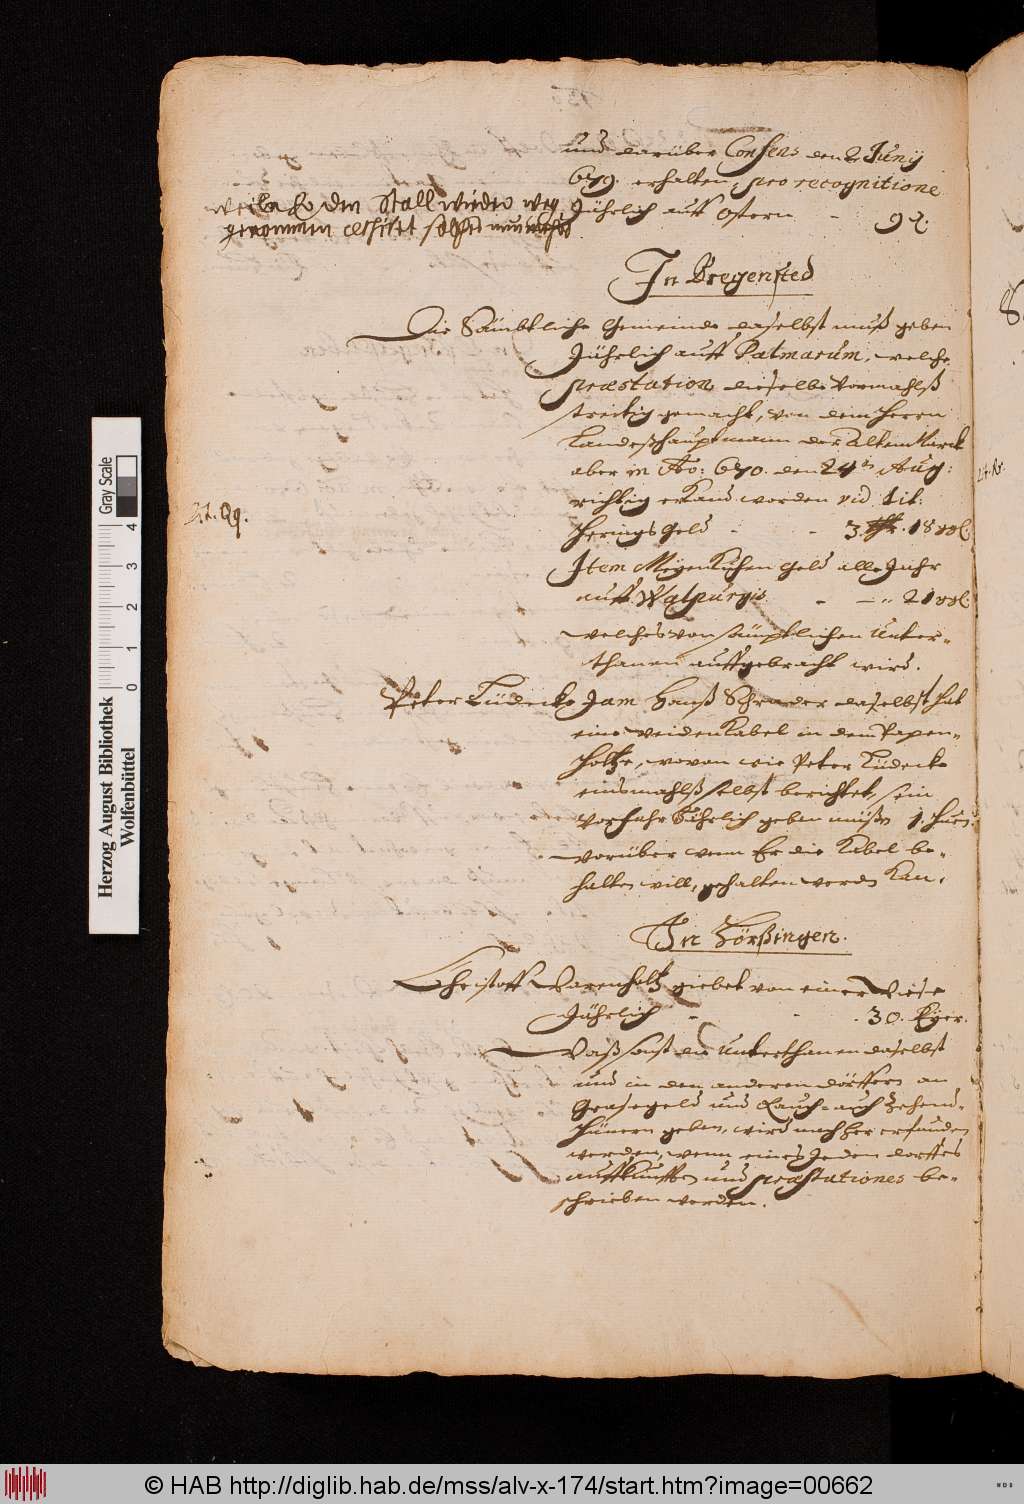 und darüber Consens den 2 Juny
679. erhalten, pro recognitione
Jährlich auff ostern - 9 ₰.
weil er den Stall wieder weg
genommen cessiret solches nun
In Bregensted
Die Sämbtliche Gemeinde daselbst muß geben
Jährlich auff Palmarum, welche
præstation dieselbe vormahlß
streitig gemacht, von dem Herrn
Landeßhauptmann der Alten Marck
aber in Ao: 670. den 24t Aug:
richtig erkand worden vid. tit.
Lit. Qq.
Herings Geld - - 3. thlr. 18 ßl.
Item Meyenkuhen geld alle Jahr
auff Walpurgis. - - " 21 ßl.
welches von sämptlichen Unter-
thanen auffgebracht wird.
Peter Lüdecke Jam Hanß Schrader daselbst hat
eine weiden Kabel in dem Papen-
holtze, wovon wie Peter Lüdecke
einsmahlß selbst berichtet, sein
Vorfahr Jährlich geben müßen 1. Huen.
worüber wenn Er die Kabel be-
halten will, gehalten werden kan.
In Hörßingen.
Christoff Varenholtz giebet von einer Wiese
Jährlich - - 30. Eyer.
Waß sonst die Unterthanen daselbst
und in den anderen dörffern an
Grasegeld und Rauch- auch Zehend-
Hünern geben, wird nach der erfunden
werden, wenn eines Jeden dorffes
auffkünfften und præstationes be-
schrieben werden.
Herzog August Bibliothek
Wolfenbüttel
0 1 2 3 4
Gray Scale
© HAB http://diglib.hab.de/mss/alv-x-174/start.htm?image=00662